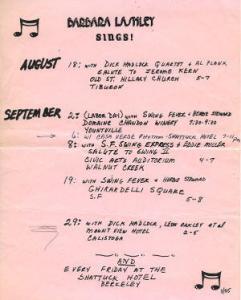 BARBARA LASHLEY
SINGS!
AUGUST 18: WITH DICK HADLOCK QUARTET & AL PLANK
SALUTE TO JEROME KERN
OLD ST. HILLARY CHURCH 5-7
TIBURON
SEPTEMBER 2: (LABOR DAY) WITH SWING FEVER +
DOMAINE CHANDON WINERY
YOUNTVILLE
6: W/ CASA VERDE RHYTHM - SHATTUCK HOTEL
8: WITH S.F. SWING EXPRESS & EDDIE MILLER
SALUTE TO SWING II
CIVIC ARTS AUDITORIUM 4-7
WALNUT CREEK
19: WITH SWING FEVER +
GHIRARDELLI SQUARE
S.F 5-8
29: WITH DICK HADLOCK, LEON OAKLEY ET AL
MOUNT VIEW HOTEL 2-5
CALISTOGA
AND
EVERY FRIDAY AT THE
SHATTUCK HOTEL
BERKELEY